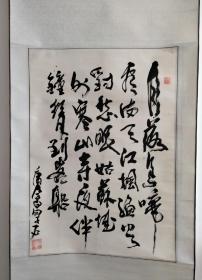 月落烏啼
霜滿天江楓漁火
對愁眠姑蘇城
外寒山寺夜半
鐘聲到客船